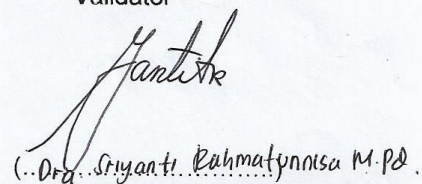 Validator
(..Dra..Sriyanti Rahmatunnisa M.Pd.